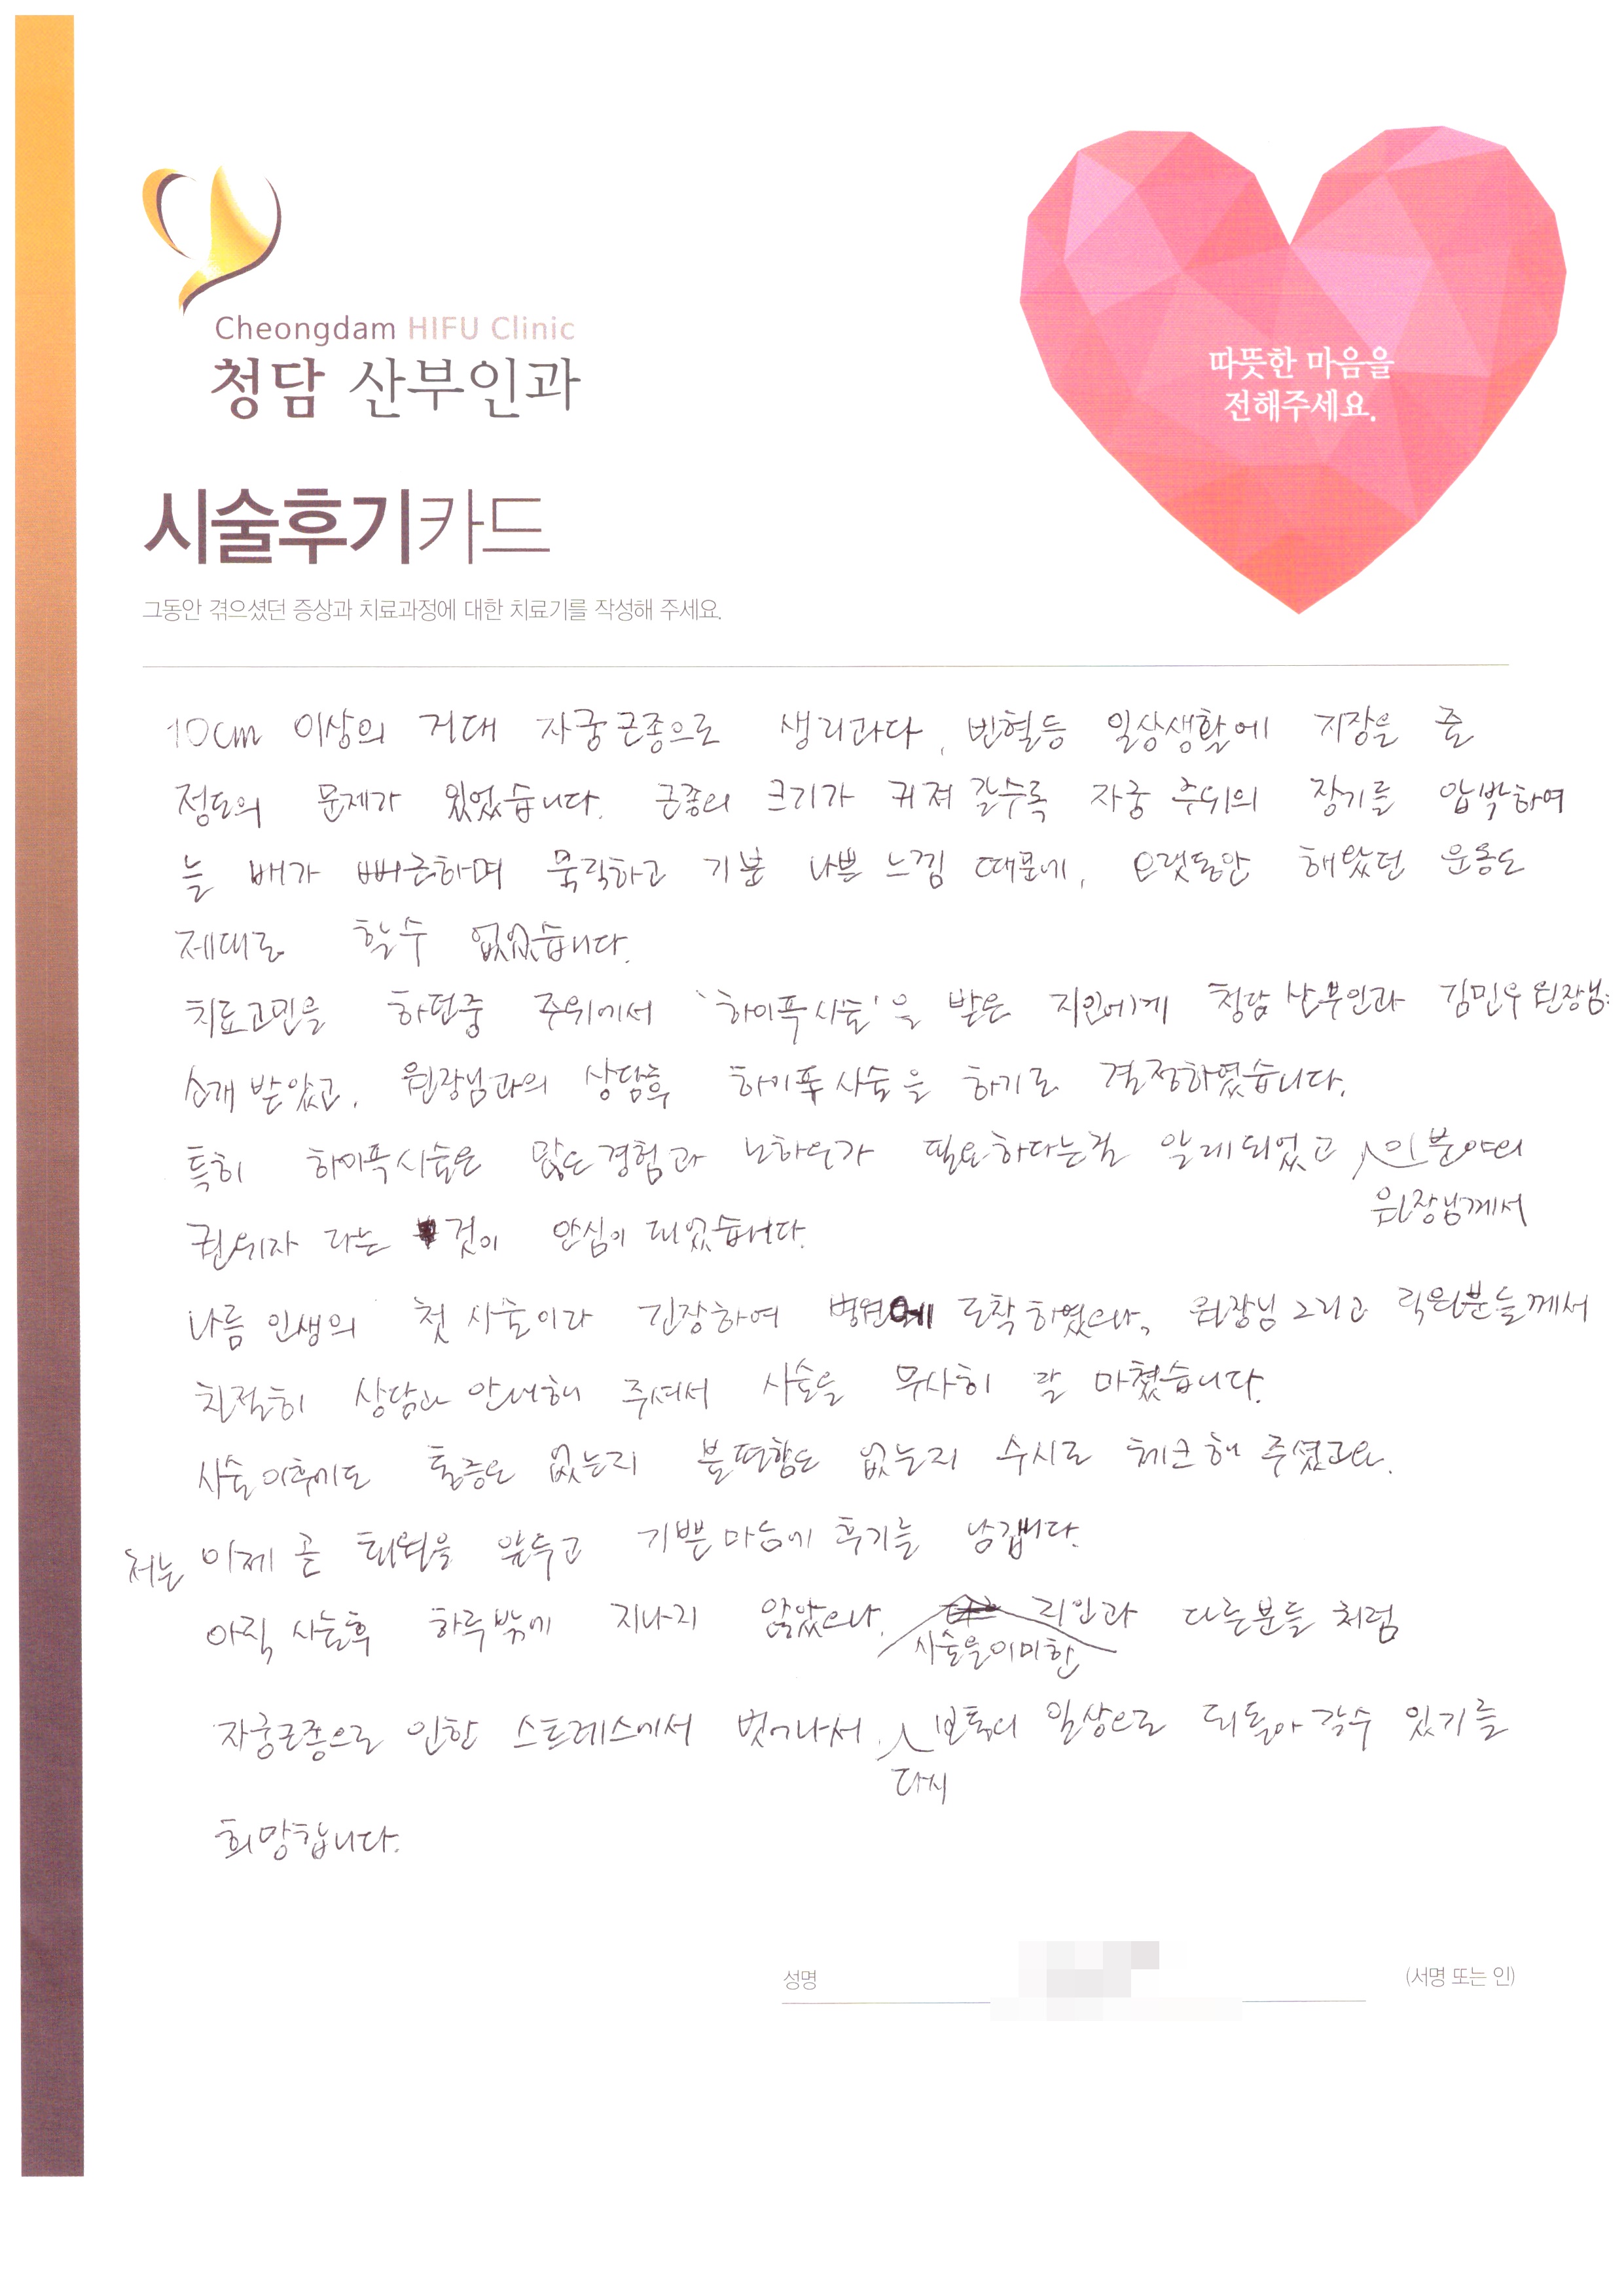 Cheongdam HIFU Clinic
청담 산부인과
따뜻한 마음을
전해주세요.
시술후기카드
그동안 겪으셨던 증상과 치료과정에 대한 치료기를 작성해 주세요.
10cm 이상의 거대 자궁근종으로 생리과다, 빈혈등 일상생활에 지장을 줄
정도의 문제가 있었습니다. 근종의 크기가 커져 갈수록 자궁 주위의 장기를 압박하여
늘 배가 뻐근하며 묵직하고 기분 나쁜 느낌 때문에, 오랫동안 해왔던 운동도
제대로 할수 없었습니다.
치료고민을 하던중 주위에서 '하이푸시술'을 받은 지인에게 청담 산부인과 김민우 원장님을
소개 받았고, 원장님과의 상담후 하이푸 시술을 하기로 결정하였습니다.
특히 하이푸시술은 많은 경험과 노하우가 필요하다는걸 알게되었고 원장님께서 이분야의
권위자 라는 것이 안심이 되었습니다.
나름 인생의 첫 시술이라 긴장하여 병원에 도착하였으나, 원장님 그리고 직원분들께서
친절히 상담과 안내해 주셔서 시술을 무사히 잘 마쳤습니다.
시술이후에도 통증은 없는지 불편함은 없는지 수시로 체크해 주셨고요.
저는 이제 곧 퇴원을 앞두고 기쁜마음에 후기를 남깁니다.
아직 시술후 하루밖에 지나지 않았으나, 시술을이미한 지인과 다른분들 처럼
자궁근종으로 인한 스트레스에서 벗어나서 다시 보통의 일상으로 되돌아 갈수 있기를
희망합니다.
성명 (서명 또는 인)